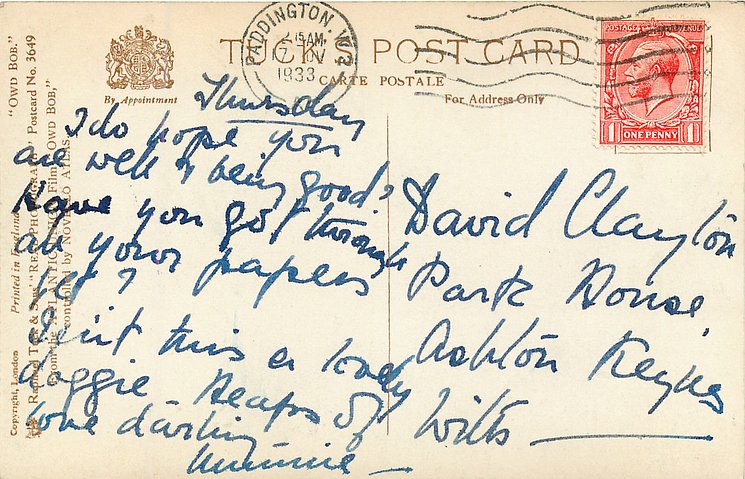 "OWD BOB."
Copyright London Printed in England
Raphael Tuck & Sons' "REAL PHOTOGRAPH" Postcard No. 3649
From the ATLANTIC Film "OWD BOB,"
controlled by NOVELLO ATLAS
By Appointment
TUCK'S POST CARD
CARTE POSTALE
For Address Only
PADDINGTON. W.2
2.15 AM
17
1933
POSTAGE REVENUE
1 ONE PENNY 1
Thursday
I do hope you
are well & being good?
Have you got through
all your papers
yet?
Isint this a lovely
doggie Heaps of
love darling
Mummie
David Clayton
Park House,
Ashton Keynes
Wilts